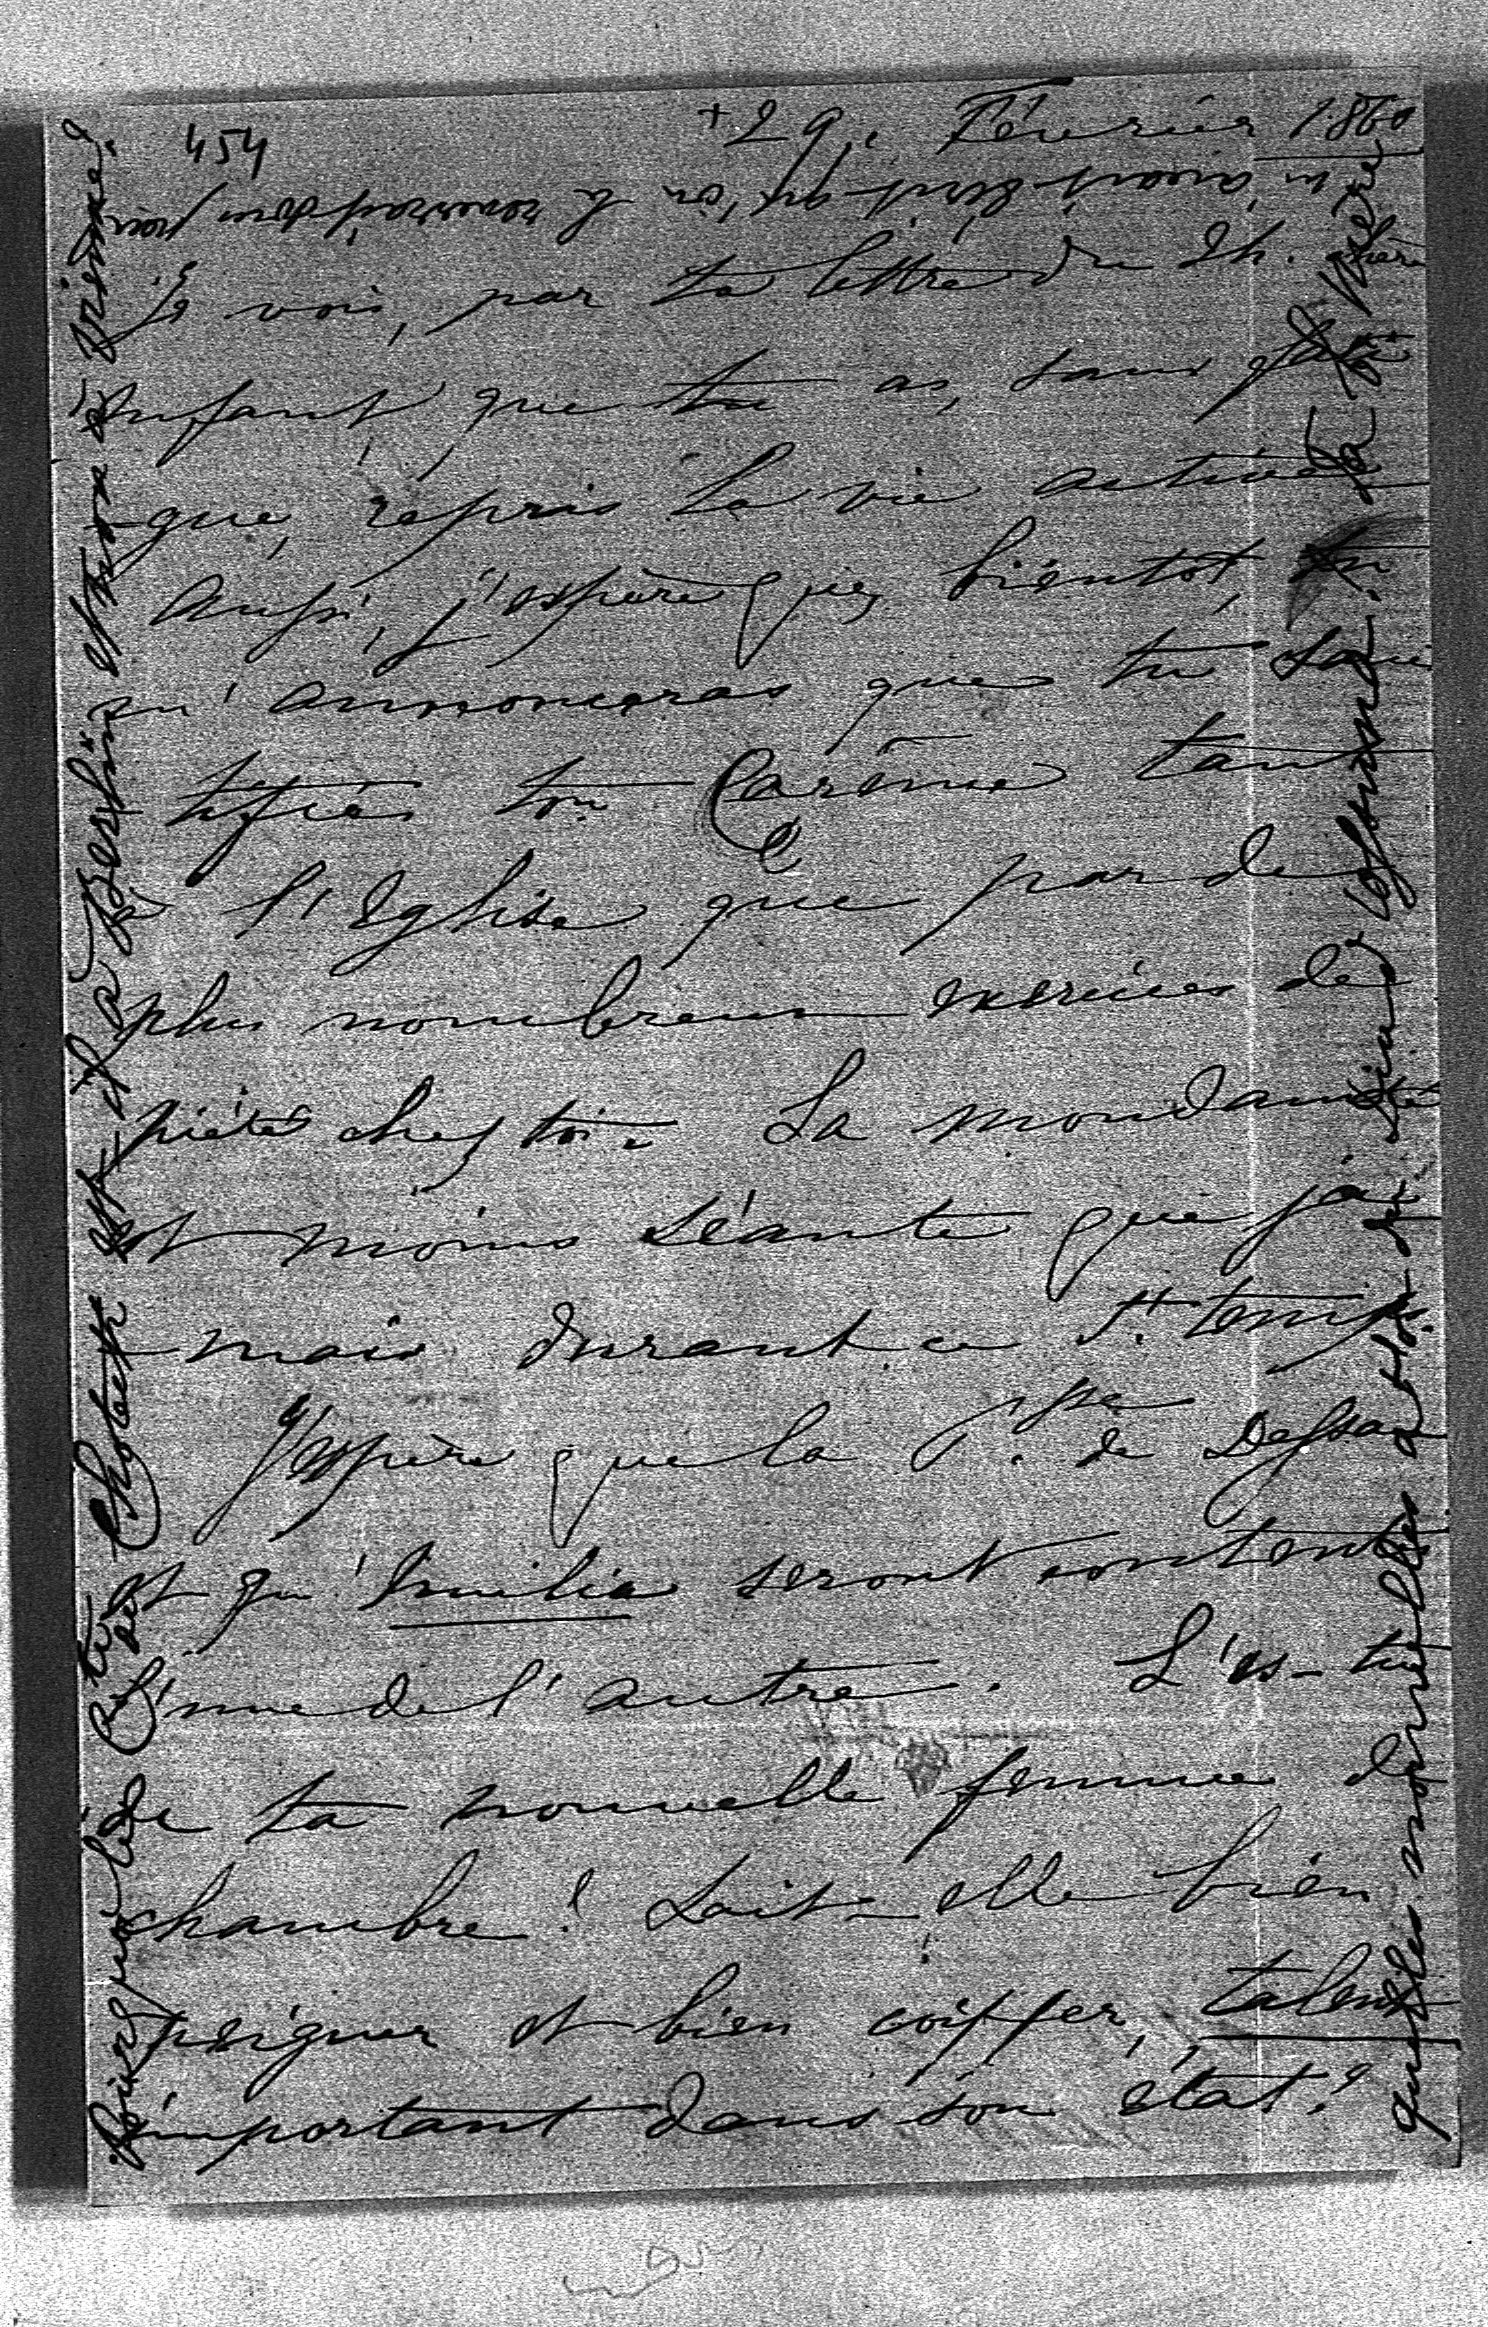 454
+ 29. Février 1860
Je vois, par ta lettre du 24. chère
enfant que tu as, sans
que, repris la vie active
Aussi, j'espère que, bientôt, tu
m'annonceras que tu sanc
tifies ton Carême tant
à l'Eglise que par de
plus nombreux exercices de
piété chez toi. La mondanité
est moins séante que ja
mais durant ce St. temps
J'espère que la Psse. de Dessau
et qu'Emilie seront contentes
l'une de l'autre. L'es-tu
de ta nouvelle femme de
chambre? Sait-elle bien
peigner et bien coiffer, talent
important dans son état?
quelles nouvelles a-t-on de Ta Mère
Pourquoi le Cte. Chotek est-il à Berlin et non à Vienne?